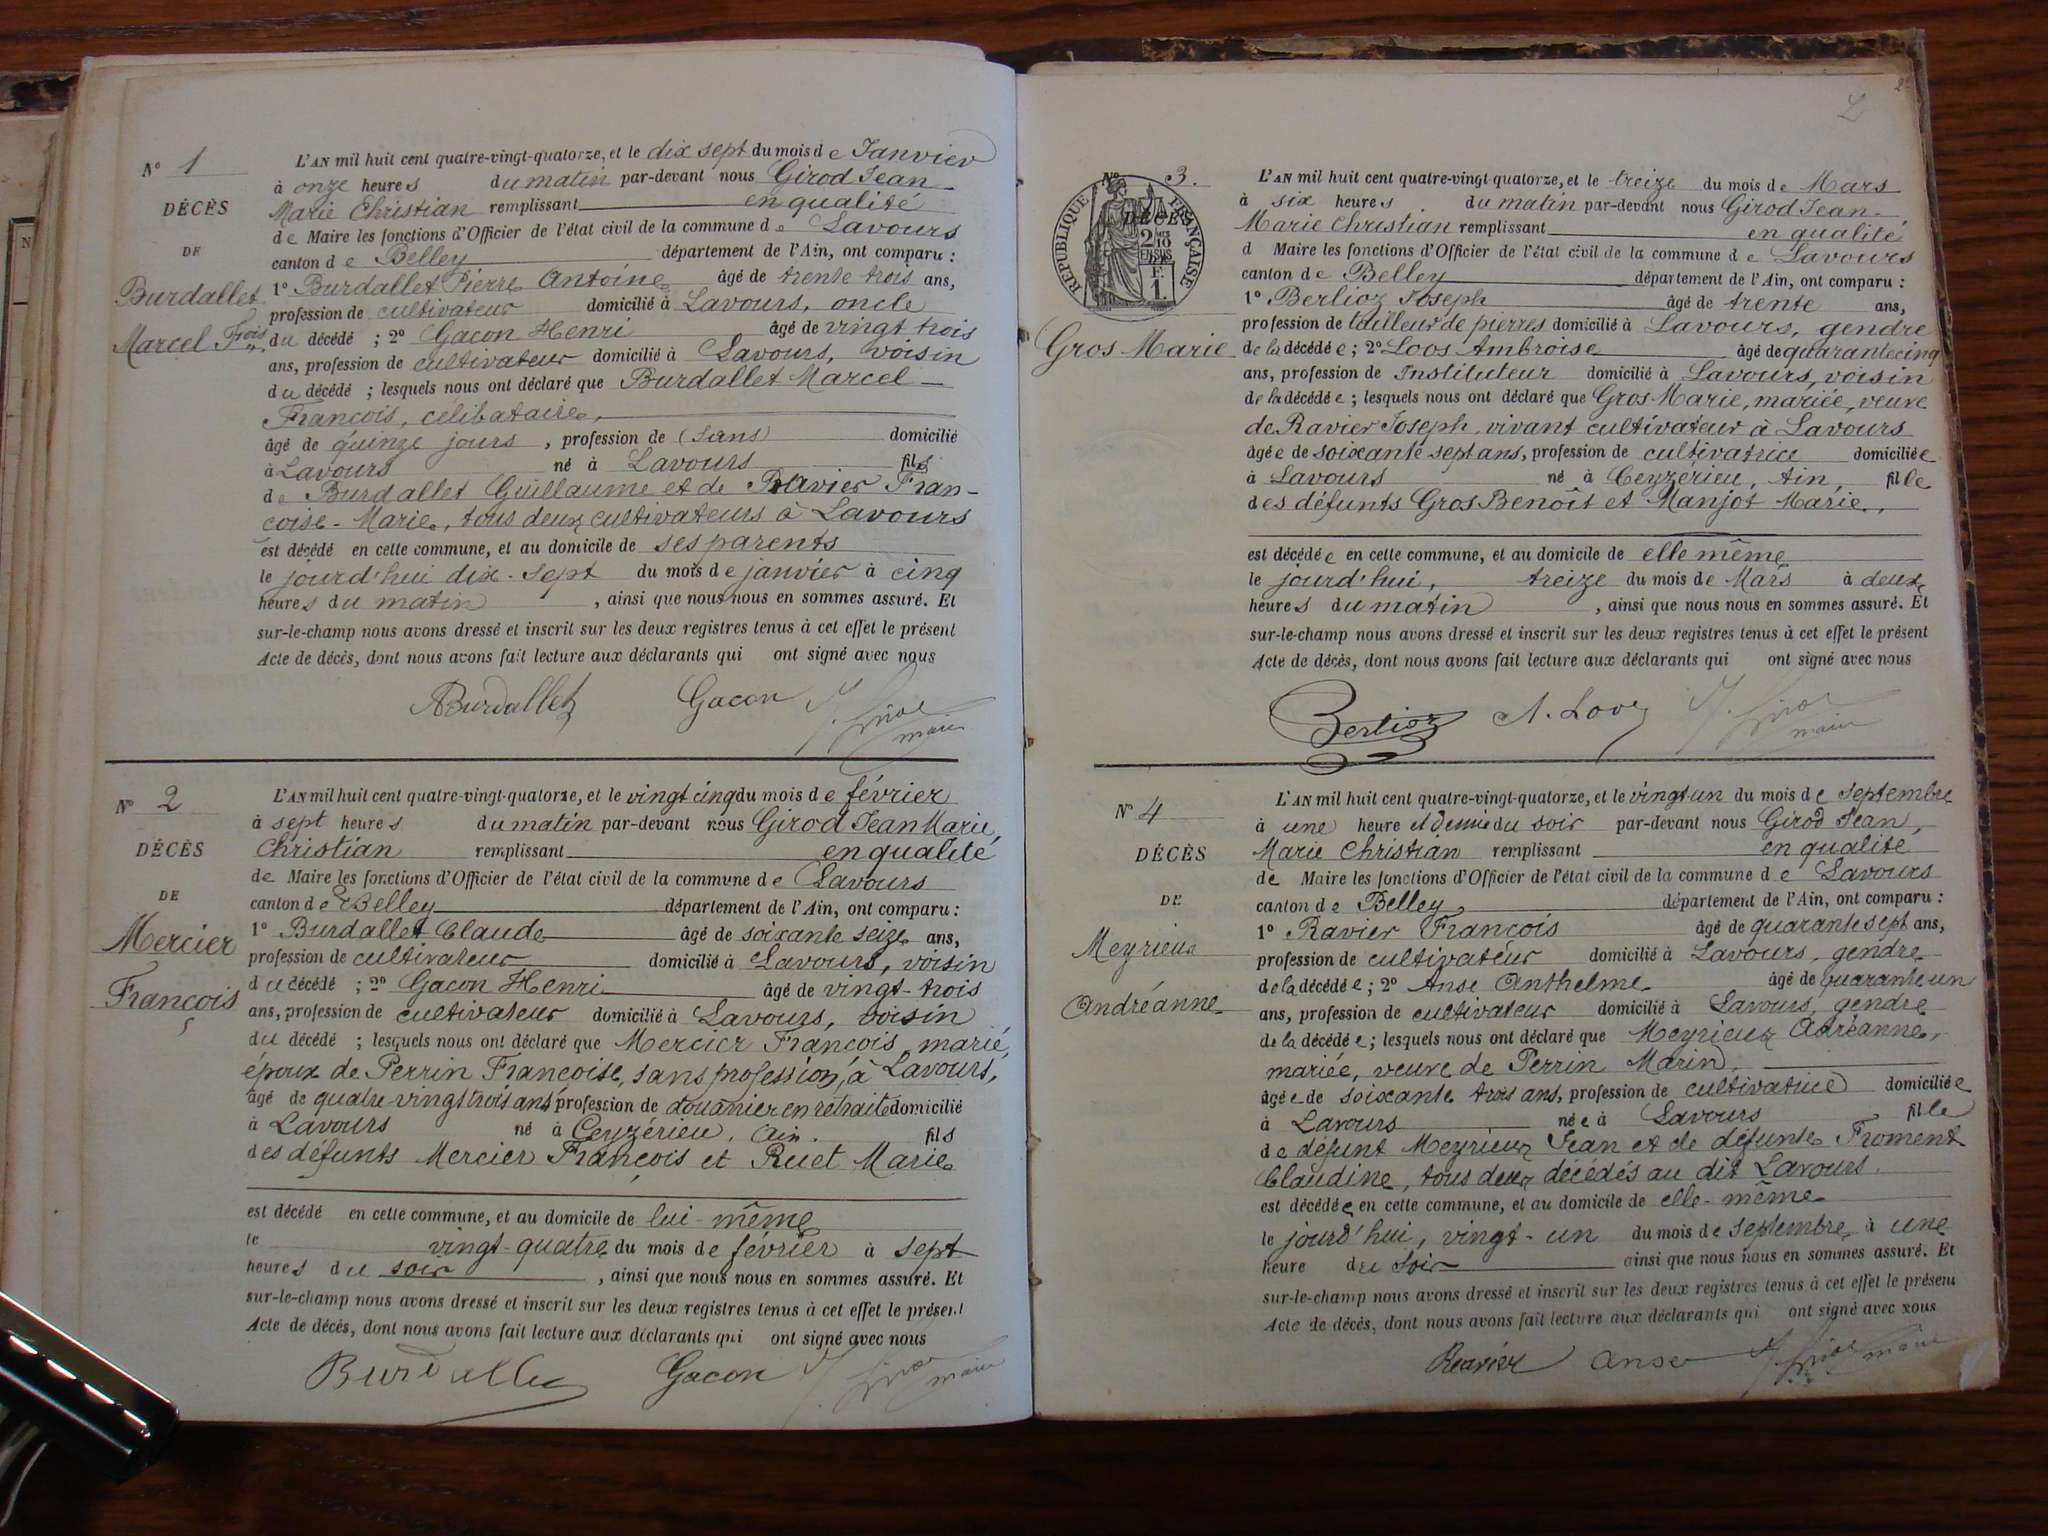 N° 1
DÉCÈS
DE
Burdallet
Marcel Frois
L'AN mil huit cent quatre-vingt-quatorze, et le dix sept du mois de Janvier
à onze heures du matin par-devant nous Girod Jean
Marie Christian remplissant en qualité
de Maire les fonctions d'Officier de l'état civil de la commune de Lavours
canton de Belley département de l'Ain, ont comparu :
1° Burdallet Pierre Antoine âgé de trente trois ans,
profession de cultivateur domicilié à Lavours, oncle
du décédé ; 2° Gacon Henri âgé de vingt trois
ans, profession de cultivateur domicilié à Lavours, voisin
du décédé ; lesquels nous ont déclaré que Burdallet Marcel
François, célibataire,
âgé de quinze jours, profession de (sans) domicilié
à Lavours né à Lavours fils
de Burdallet Guillaume et de Ravier Fran-
çoise-Marie, tous deux cultivateurs à Lavours
est décédé en cette commune, et au domicile de ses parents
le jourd'hui dix-sept du mois de janvier à cinq
heures du matin , ainsi que nous nous en sommes assuré. Et
sur-le-champ nous avons dressé et inscrit sur les deux registres tenus à cet effet le présent
Acte de décès, dont nous avons fait lecture aux déclarants qui ont signé avec nous
ABurdallet Gacon J. Girod
maire
N° 2
DÉCÈS
DE
Mercier
François
L'AN mil huit cent quatre-vingt-quatorze, et le vingt cinq du mois de février
à sept heures du matin par-devant nous Girod Jean Marie,
Christian remplissant en qualité
de Maire les fonctions d'Officier de l'état civil de la commune de Lavours
canton de Belley département de l'Ain, ont comparu :
1° Burdallet Claude âgé de soixante seize ans,
profession de cultivateur domicilié à Lavours, voisin
du décédé ; 2° Gacon Henri âgé de vingt-trois
ans, profession de cultivateur domicilié à Lavours, voisin
du décédé ; lesquels nous ont déclaré que Mercier François, marié,
époux de Perrin Françoise, sans profession, à Lavours,
âgé de quatre vingt trois ans, profession de douanier en retraite domicilié
à Lavours né à Ceyzérieu, Ain. fils
des défunts Mercier François et Ruet Marie
est décédé en cette commune, et au domicile de lui-même
le vingt-quatre du mois de février à sept
heures du soir , ainsi que nous nous en sommes assuré. Et
sur-le-champ nous avons dressé et inscrit sur les deux registres tenus à cet effet le présent
Acte de décès, dont nous avons fait lecture aux déclarants qui ont signé avec nous
Burdallet Gacon J. Girod
maire
2
N° 3.
DÉCÈS
RÉPUBLIQUE FRANÇAISE
2/10
EN SUS
F.
1.
Gros Marie
L'AN mil huit cent quatre-vingt-quatorze, et le treize du mois de Mars
à six heures du matin par-devant nous Girod Jean-
Marie Christian remplissant en qualité
d Maire les fonctions d'Officier de l'état civil de la commune de Lavours
canton de Belley département de l'Ain, ont comparu :
1° Berlioz Joseph âgé de trente ans,
profession de tailleur de pierres domicilié à Lavours, gendre
de la décédée ; 2° Loos Ambroise âgé de quarante cinq
ans, profession de Instituteur domicilié à Lavours, voisin
de la décédée ; lesquels nous ont déclaré que Gros Marie, mariée, veuve
de Ravier Joseph, vivant cultivateur à Lavours
âgée de soixante sept ans, profession de cultivatrice domiciliée
à Lavours né à Ceyzérieu, Ain, fille
des défunts Gros Benoît et Manjot Marie,
est décédée en cette commune, et au domicile de elle même
le jourd'hui, treize du mois de Mars à deux
heures du matin , ainsi que nous nous en sommes assuré. Et
sur-le-champ nous avons dressé et inscrit sur les deux registres tenus à cet effet le présent
Acte de décès, dont nous avons fait lecture aux déclarants qui ont signé avec nous
Berlioz A. Loos J. Girod
maire
N° 4
DÉCÈS
DE
Meyrieux
Andréanne
L'AN mil huit cent quatre-vingt-quatorze, et le vingt un du mois de septembre
à une heure et demie du soir par-devant nous Girod Jean,
Marie Christian remplissant en qualité
de Maire les fonctions d'Officier de l'état civil de la commune de Lavours
canton de Belley département de l'Ain, ont comparu :
1° Ravier François âgé de quarante sept ans,
profession de cultivateur domicilié à Lavours, gendre
de la décédée ; 2° Anse Anthelme âgé de quarante un
ans, profession de cultivateur domicilié à Lavours, gendre
de la décédée ; lesquels nous ont déclaré que Meyrieux Adréanne,
mariée, veuve de Perrin Marin,
âgée de soixante trois ans, profession de cultivatrice domiciliée
à Lavours née à Lavours fille
de défunt Meyrieux Jean et de défunte Froment
Claudine, tous deux décédés au dit Lavours.
est décédée en cette commune, et au domicile de elle-même
le jourd'hui, vingt-un du mois de septembre à une
heure du soir ainsi que nous nous en sommes assuré. Et
sur-le-champ nous avons dressé et inscrit sur les deux registres tenus à cet effet le présent
Acte de décès, dont nous avons fait lecture aux déclarants qui ont signé avec nous
Ravier Anse J. Girod maire